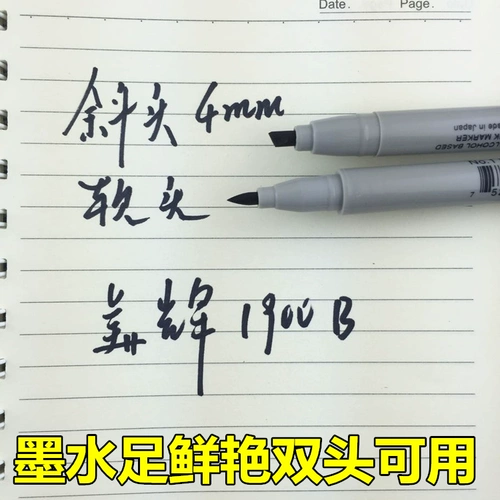 Date. Page.
斜头 4mm
软头
美辉 1900B
ade in Japan
K MARKER
LCOHOL BASED
墨水足鲜艳双头可用